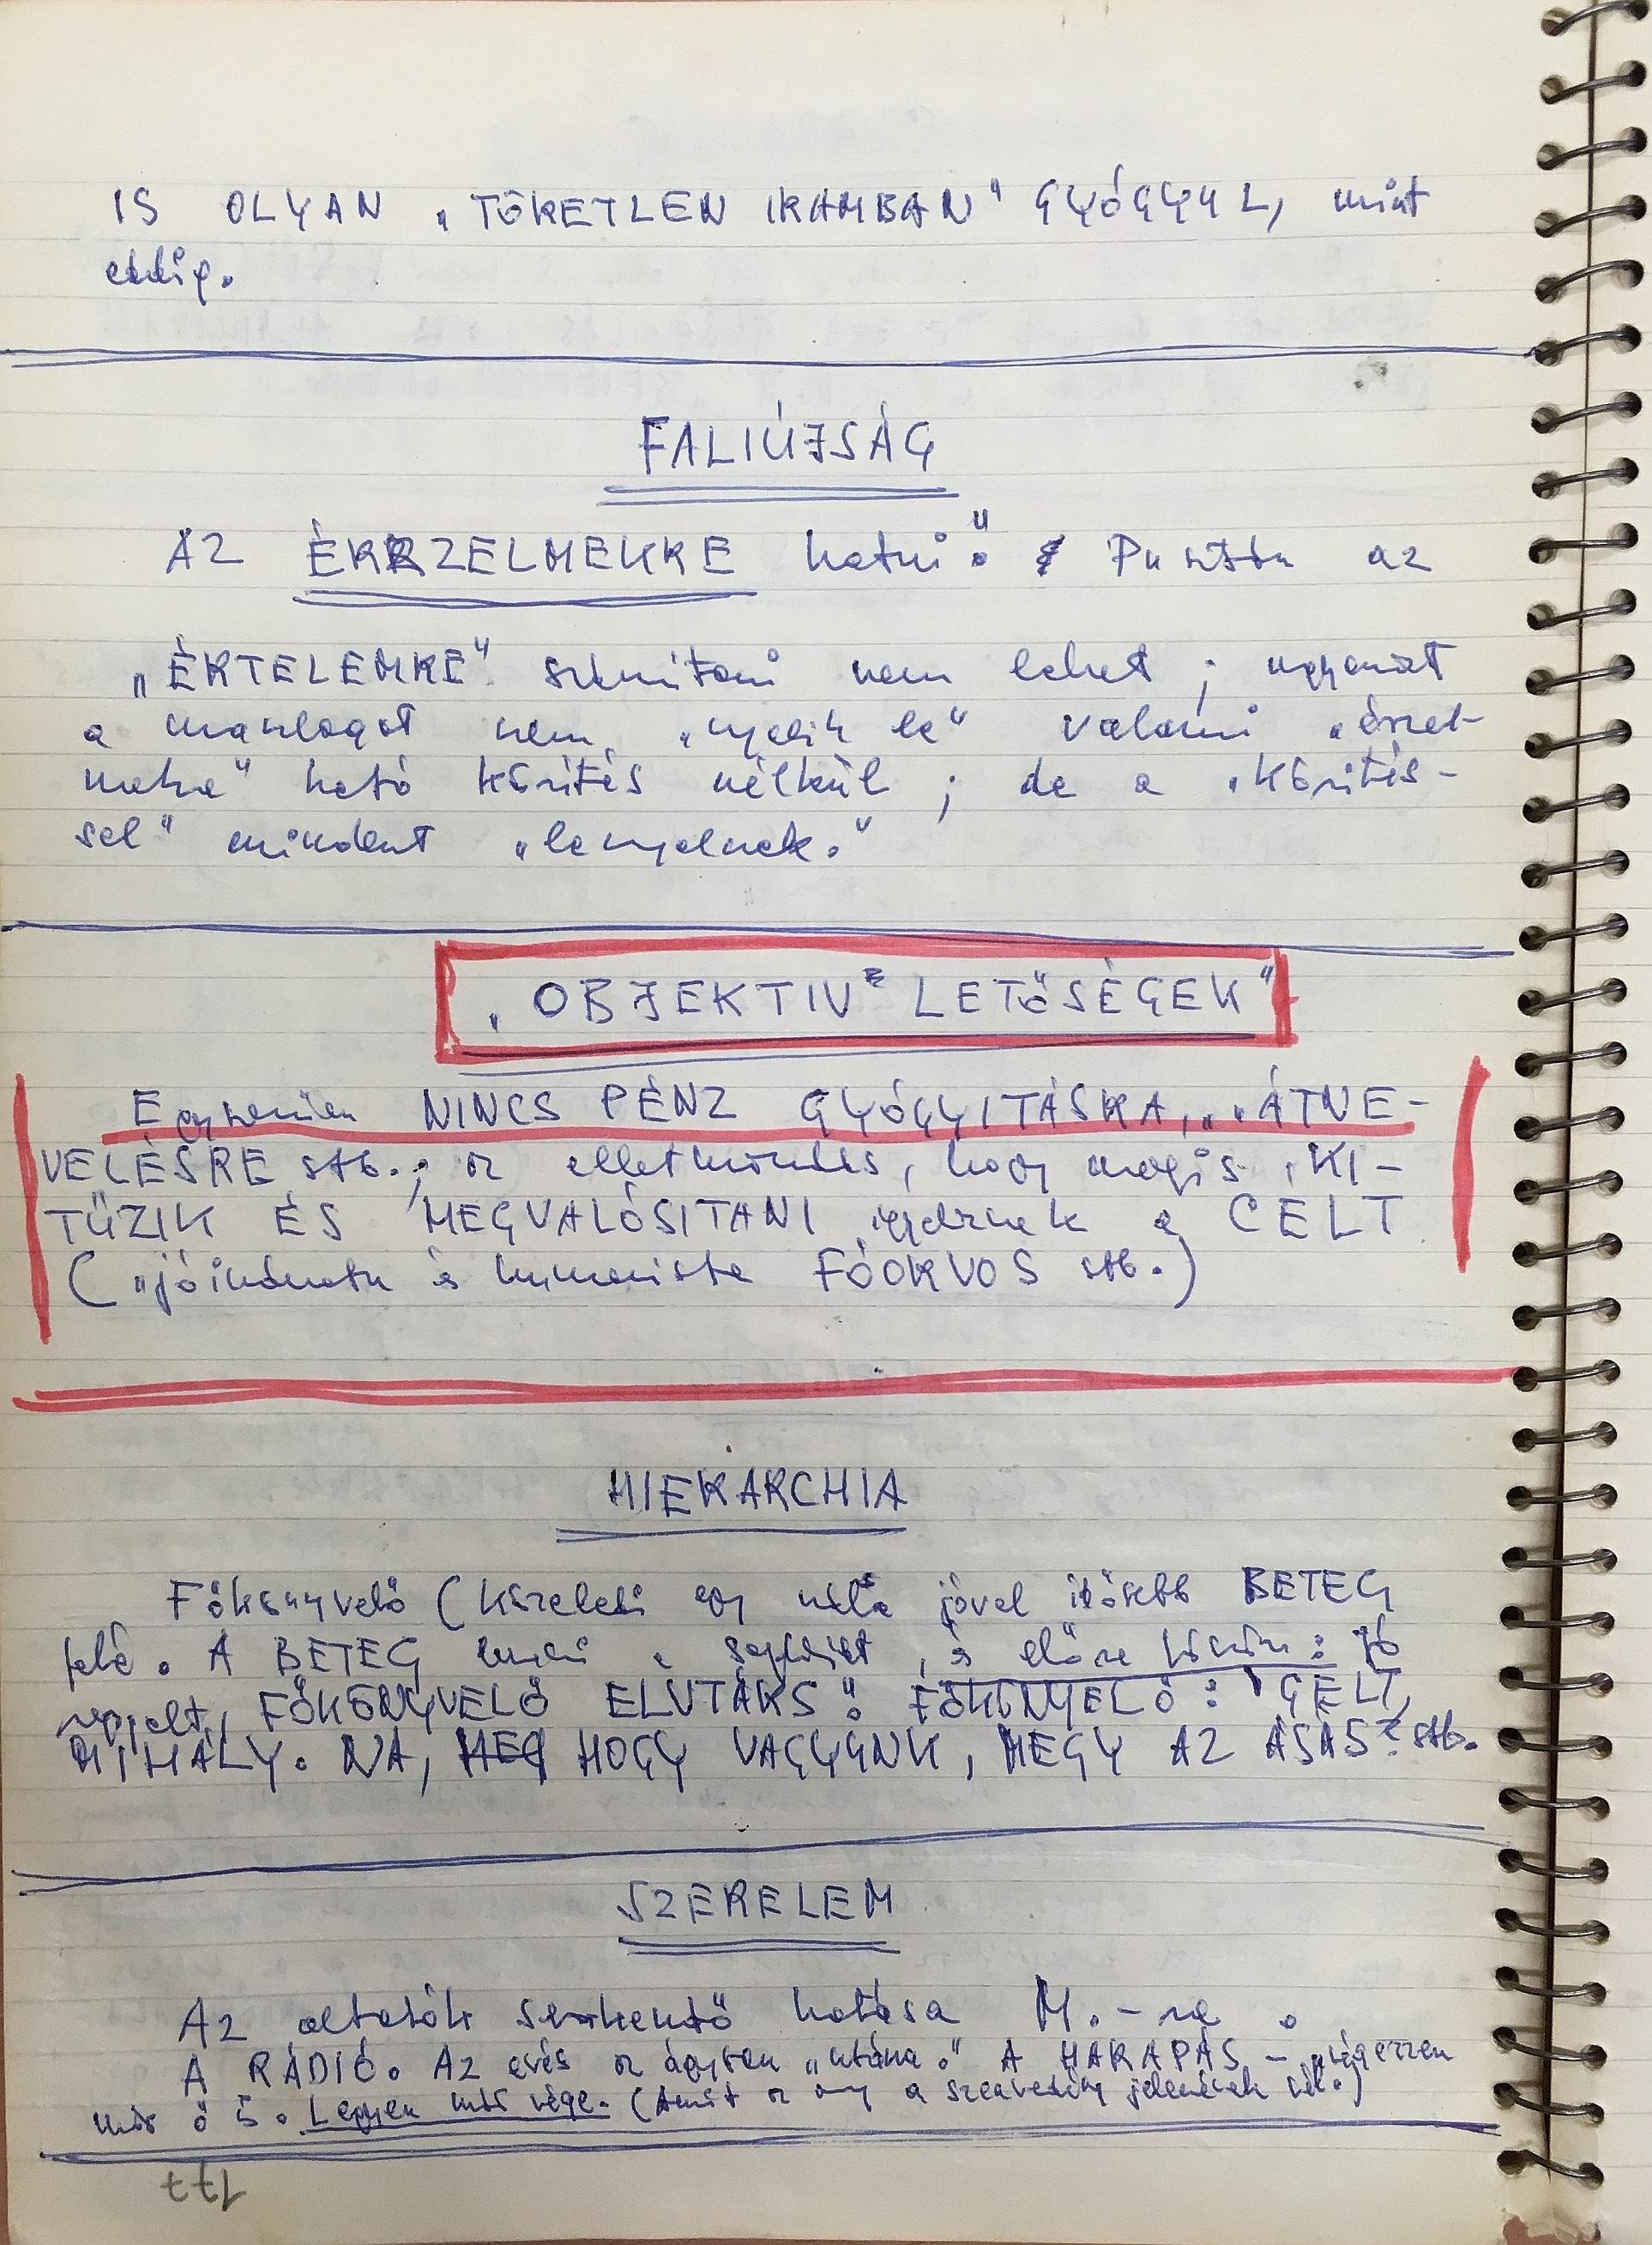 IS OLYAN „TŐKETLEN IRAMBAN" GYÓGYUL, mint
eddig.
FALIÚJSÁG
AZ ÉRRZELMEKRE hatni"! Pusztán az
„ÉRTELEMRE" számítani nem lehet; ugyanazt
a maszlagot nem „nyelik le" valami „érzel-
mekre" ható körítés nélkül; de a „körítés-
sel" mindent „lenyelnek."
„OBJEKTIV LETŐSÉGEK"
Egyszerűen NINCS PÉNZ GYÓGYITÁSRA, „ÁTNE-
VELÉSRE stb.; az ellentmondás, hogy mégis KI-
TŰZIK ÉS MEGVALÓSITANI igyekeznek a CÉLT
(„jóindulatu és humanista FŐORVOS stb.)
HIERARCHIA
Főkönyvelő (közeledi egy nála jóval idősebb BETEG
felé. A BETEG a és előre köszön: Jó
reggelt, FŐKÖNYVELŐ ELVTÁRS! FŐKÖNYVELŐ:
MIHÁLY. NA, HOGY VAGYUNK, MEGY AZ ÁSÁS? stb.
SZERELEM
Az altatók serkentő hatása M.-re.
A RÁDIÓ. Az evés az ágyban „utána." A HARAPÁS – végezzen
már ő is. Legyen már vége. (Amit az any a szeavedőny jelenének vél.)
177